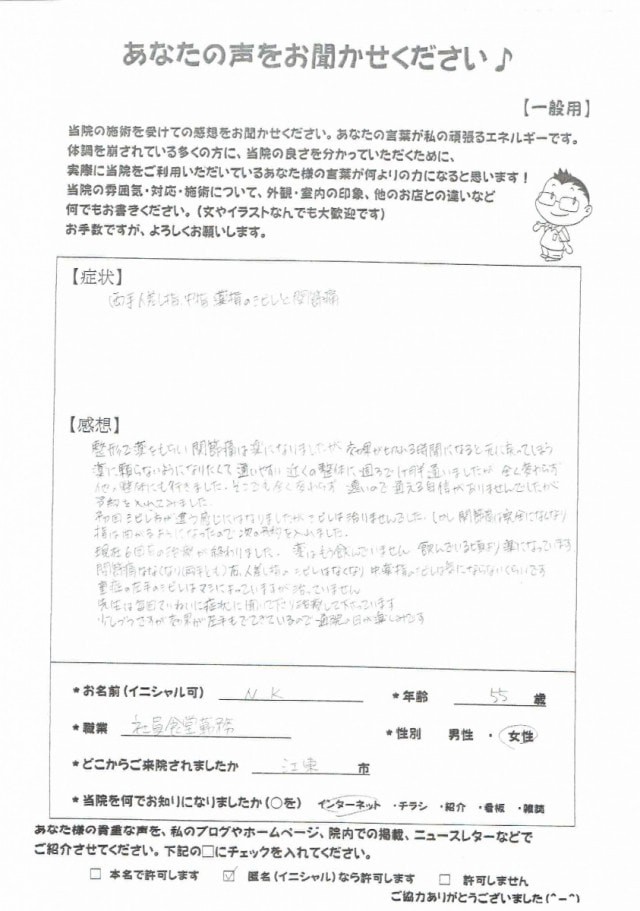 あなたの声をお聞かせください♪
【一般用】
当院の施術を受けての感想をお聞かせください。あなたの言葉が私の頑張るエネルギーです。
体調を崩されている多くの方に、当院の良さを分かっていただくために、
実際に当院をご利用いただいているあなた様の言葉が何よりの力になると思います!
当院の雰囲気・対応・施術について、外観・室内の印象、他のお店との違いなど
何でもお書きください。(文やイラストなんでも大歓迎です)
お手数ですが、よろしくお願いします。
【症状】
両手人差し指、中指 薬指のシビレと関節痛
【感想】
整形で薬をもらい関節痛は楽になりましたが 効果が切れる時間になると元に戻ってしまう
薬に頼らないようになりたくて 通いやすい近くの整体に 通いましたが 全く変わらず
他の整体にも行きました。そこでも全く変わらず 遠いので通える自信がありませんでしたが
予約を入れてみました。
初回 シビレ方が違う感じにはなりましたがシビレは治りませんでした。しかし関節痛は完全になくなり
指は曲がるようになったので次の予約を入れました。
現在6回目の治療が終わりました。薬はもう飲んでいません 飲んでいる頃より楽になっています
関節痛はなくなり(両手とも)右、人差し指のシビレはなくなり 中薬指のシビレは気にならないくらいです
重症の左手のシビレはマシになっていますが治っていません
先生は毎回ていねいに症状に聞いて下さり治療して下さっています
少しづつですが効果が左手もでてきているので 通院の日が楽しみです
*お名前(イニシャル可) N K *年齢 55 歳
*職業 社員食堂勤務 *性別 男性 ・ 女性
*どこからご来院されましたか 江東 市
*当院を何でお知りになりましたか(○を) インターネット ・チラシ ・紹介 ・看板 ・雑誌
あなた様の貴重な声を、私のブログやホームページ、院内での掲載、ニュースレターなどで
ご紹介させてください。下記の□にチェックを入れてください。
□ 本名で許可します ☑ 匿名(イニシャル)なら許可します □ 許可しません
ご協力ありがとうございました(^-^)